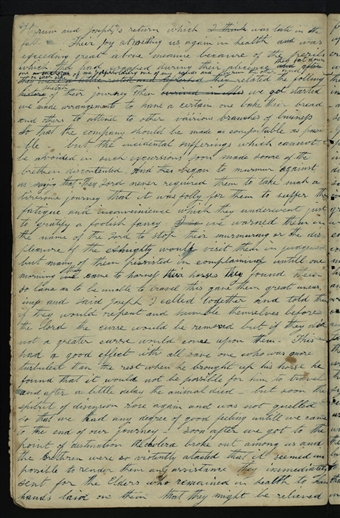 Hirum and Joseph's return which I think was late in the
fall Their joy at meeting us again in health and was
exceeding great above measure because of the perils
which they had escaped during their absence
related the following
history of their journey when we got started
we made arrangements to have a certain one bake their bread
and others to attend to other various branches of buisness
so that the company should be made as comfortable as pos
ible but the incidental sufferings which cannot
be avoided in such excursions soon made some of the
brethren discontented And they began to murmur against
us saying that the Lord never required them to take such a
tiresome journey that it was folly for them to suffer the
fatigue and inconvenience which they underwent just
to gratify us we warned them in
the name of the Lord to stop their murmuring or the dis
pleasure of the almighty would visit them in judgement
but many of them persisted in complaining untill one
morning they came to harness their horses they found them
so lame as to be unable to travel this gave them great
and said Joseph I called together and told them
if they would repent and humble themselves before
the Lord the curse would be removed but if they did
not a greater curse would come upon them. This
had a good effect with all save one who was more
turbulent than the rest when he brought up his horse he
found that it would not be possible for him to
and after a little delay the animal died but soon the
spirit of discension rose again and was not quelled
so that we had any degree of good feeling untill we came
to the end of our journey Soon after we got to the
point of destination the cholera broke out among us and
the brethren were so violently attacked that it seemed im
possible to render them any assistance they immediately
sent for the Elders who remained in health to have
hands laid on them that they might be relieved